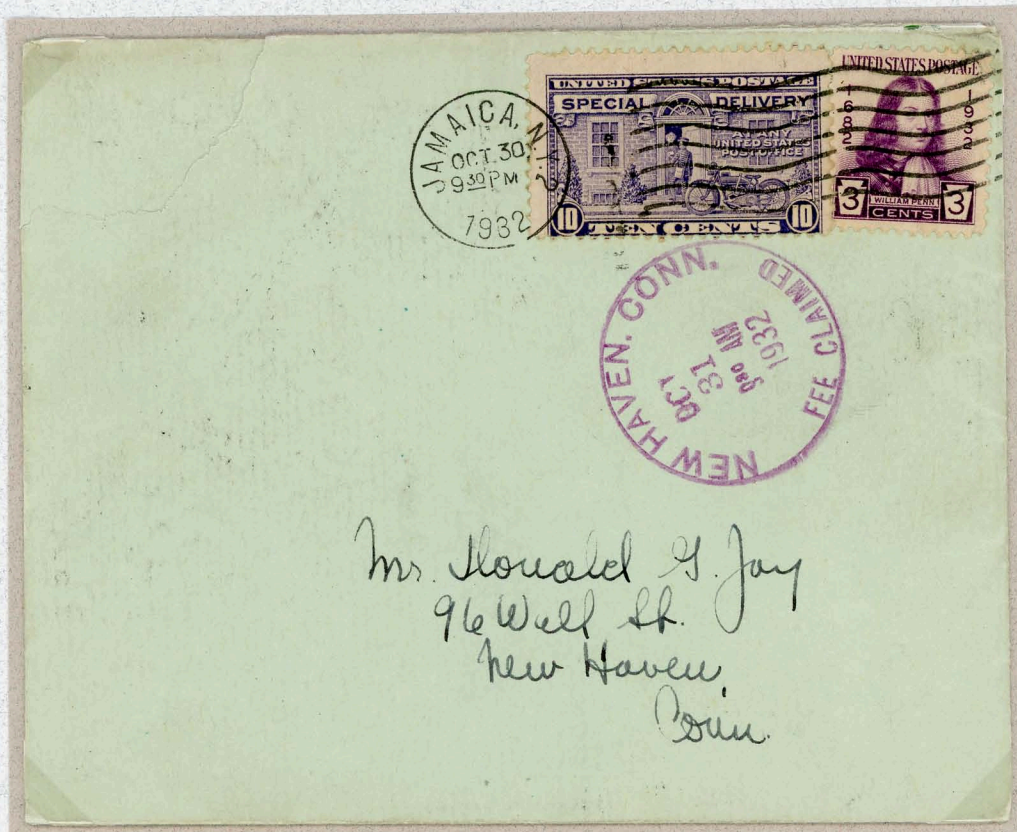 JAMAICA, N.Y.
OCT. 30
9 30 PM
1932
UNITED STATES POSTAGE
SPECIAL DELIVERY
AT ANY
UNITED STATES
POST OFFICE
10 TEN CENTS 10
UNITED STATES POSTAGE
1682 1932
WILLIAM PENN
3 CENTS 3
NEW HAVEN. CONN.
FEE CLAIMED
OCT
31
AM
1932
Mr. Donald G. Jay
96 Wall St.
New Haven,
Conn.